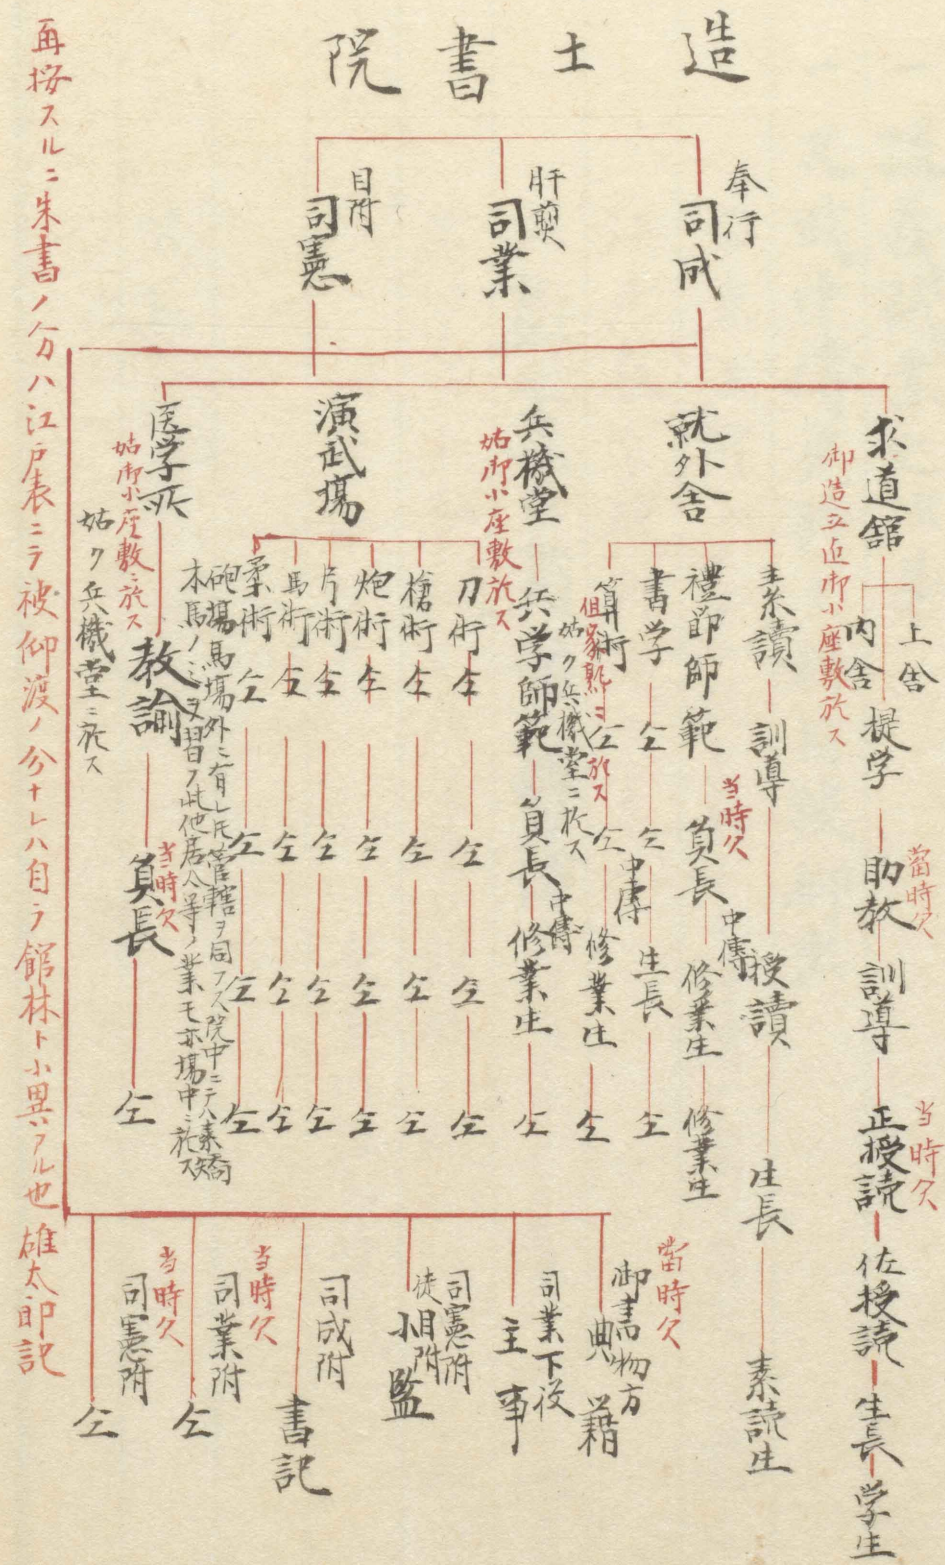 造士書院
奉行
司成
肝煎
司業
目附
司憲
求道館
御造立迄御小座敷於ス
上舎
内舎
提学
助教
當時欠
訓導
正授読
当時欠
佐授読
生長
学生
就外舎
素讀
訓導
授讀
生長
素読生
禮節師範
員長
当時欠
中傳
修業生
修業生
書学
仝
仝
中傳
生長
仝
算術
仝
仝
修業生
仝
姑ク兵機堂ニ於ス
但家塾ヨ於ス
兵機堂
姑御小座敷於ス
兵学師範
員長
中傳
修業生
仝
演武場
刀術
仝
仝
仝
仝
槍術
仝
仝
仝
仝
炮術
仝
仝
仝
仝
片術
仝
仝
仝
仝
馬術
仝
仝
仝
仝
柔術
仝
仝
仝
仝
砲場馬場外ニ有レ𪜈管轄ヲ同フス院中ニテハ素矯
木馬ノミヲ習フ此他居合等ノ業モ亦場中ニ於ス
医学所
姑御小座敷ニ於ス
姑ク兵機堂ニ於ス
教諭
員長
当時欠
仝
御書物方
典籍
當時欠
司業下役
主事
司憲附
徒目附
小監
司成附
書記
司業附
当時欠
仝
司憲附
当時欠
仝
再按スルニ朱書ノ分ハ江戸表ニテ被仰渡ノ分ナレハ自ラ館林ト小異アル也 雄太郎記